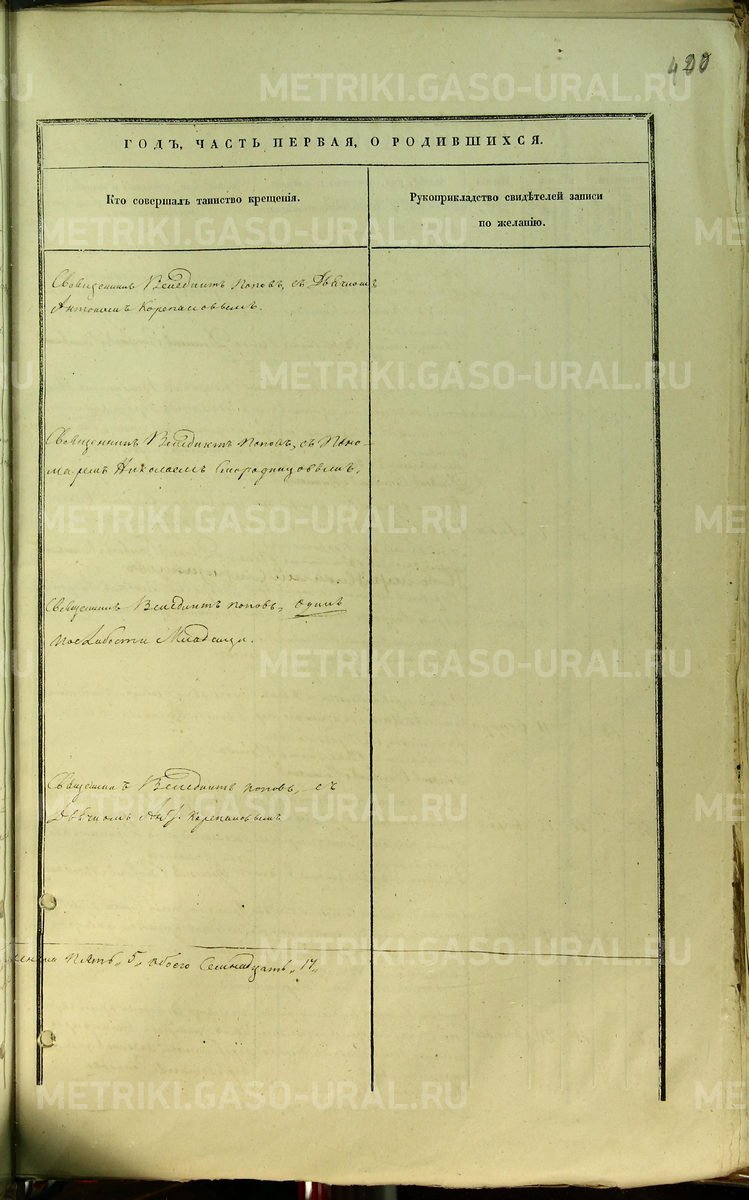 400
ГОДЪ, ЧАСТЬ ПЕРВАЯ, О РОДИВШИХСЯ.
Кто совершалъ таинство крещенія.
Рукоприкладство свидѣтелей записи
по желанію.
Священникъ Венедиктъ Поповъ, съ Дьячкомъ
Корепановымъ.
Священникъ Венедиктъ Поповъ, съ Поно-
маремъ Николаемъ Смородинцовымъ.
Священникъ Венедиктъ Поповъ, одинъ
по слабости Младенца.
Священникъ Венедиктъ Поповъ, съ
Дьячкомъ Корепановымъ
Пять „5„ обоего Семнадцать „17„
METRIKI.GASO-URAL.RU